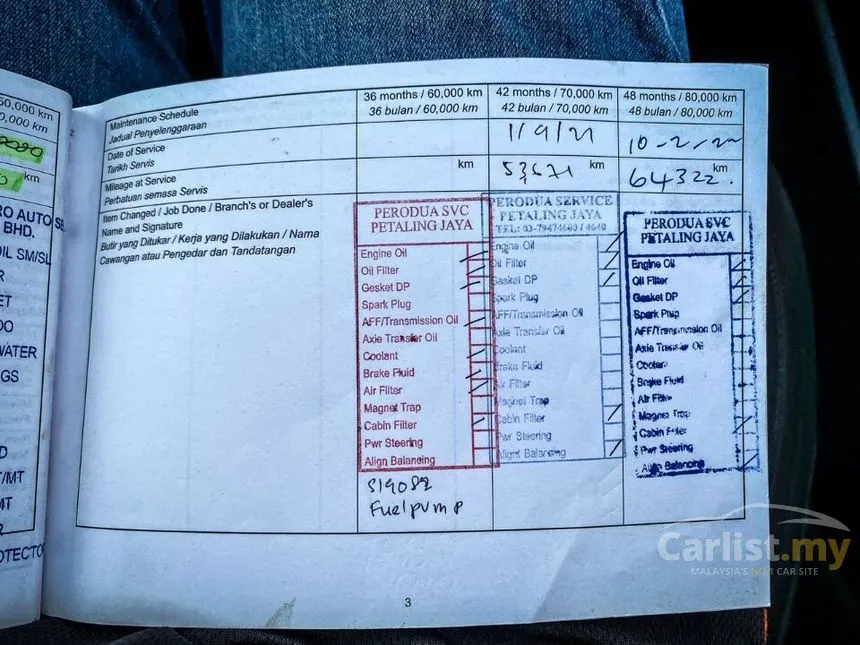 50,000 km
0,000 km
km
RO AUTO SE
BHD.
OIL SM/SL
R
ET
OO
WATER
GS
D
T/MT
MT
R
OTECTO
2
Maintenance Schedule
Jadual Penyelenggaraan
36 months / 60,000 km
36 bulan / 60,000 km
42 months / 70,000 km
42 bulan / 70,000 km
48 months / 80,000 km
48 bulan / 80,000 km
Date of Service
Tarikh Servis
1/9/21
10-2-22
Mileage at Service
Perbatuan semasa Servis
km
53671 km
64322. km
Item Changed / Job Done / Branch's or Dealer's
Name and Signature
Butir yang Ditukar / Kerja yang Dilakukan / Nama
Cawangan atau Pengedar dan Tandatangan
PERODUA SVC
PETALING JAYA
Engine Oil
Oil Filter
Gesket DP
Spark Plug
AFF/Transmission Oil
Axle Transfer Oil
Coolant
Brake Fluid
Air Filter
Magnet Trap
Cabin Filter
Pwr Steering
Align Balancing
Fuel pump
PERODUA SERVICE
PETALING JAYA
TEL: 03-79474600 / 4640
Engine Oil
Oil Filter
Gasket DP
Spark Plug
AFF/Transmission Oil
Axle Transfer Oil
Coolant
Brake Fluid
Air Filter
Magnet Trap
Cabin Filter
Pwr Steering
Alignt Balancing
PERODUA SVC
PETALING JAYA
Engine Oil
Oil Filter
Gasket DP
Spark Plug
AFF/Transmission Oil
Axle Transfer Oil
Coolant
Brake Fluid
Air Filter
Magnet Trap
Cabin Filter
Pwr Steering
Align Balancing
3
Carlist.my
MALAYSIA'S NO.1 CAR SITE